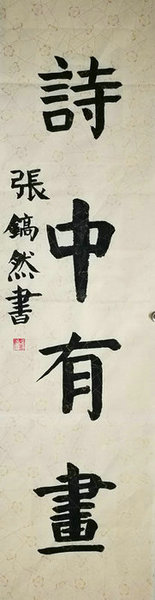 詩中有畫
張鎬然書